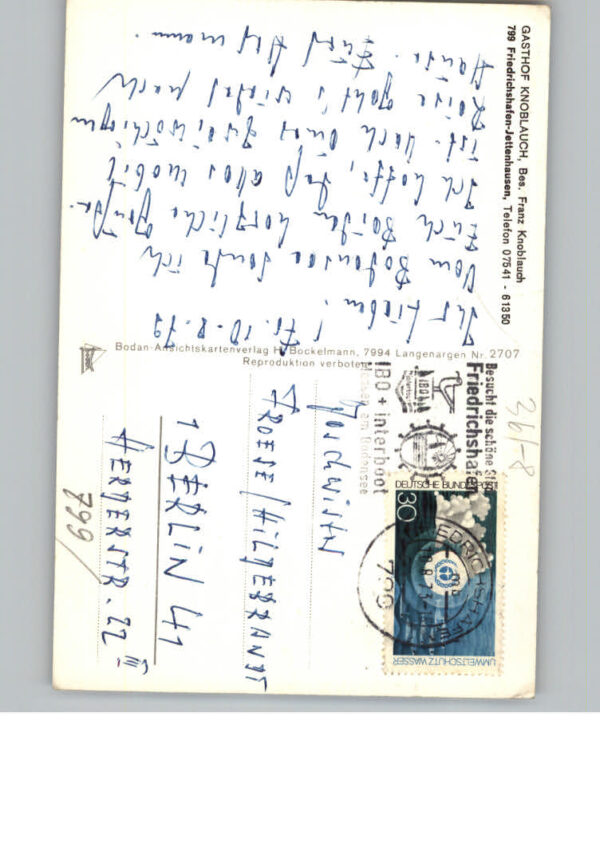 GASTHOF KNOBLAUCH, Bes. Franz Knoblauch
799 Friedrichshafen-Jettenhausen, Telefon 07541 - 61350
Fr. 10.8.73
Ihr Lieben!
Vom Bodensee sende ich
Euch Beiden herzliche Grüße.
Ich hoffe, daß alles mobil
ist. Nach einer zweiwöchigen
Reise geht's wieder nach
Hause. Eure
Bodan-Ansichtskartenverlag H. Bockelmann, 7994 Langenargen Nr. 2707
Reproduktion verboten
Besucht die schöne
Friedrichshafen
IBO
IBO + interboot
Messen am Bodensee
DEUTSCHE BUNDESPOST
30
UMWELTSCHUTZ WASSER
FRIEDRICHSHAFEN
799
Geschwister
FROESE / HILDEBRANDT
1 BERLIN 41
HERDERSTR. 22 III
799/
36/-8